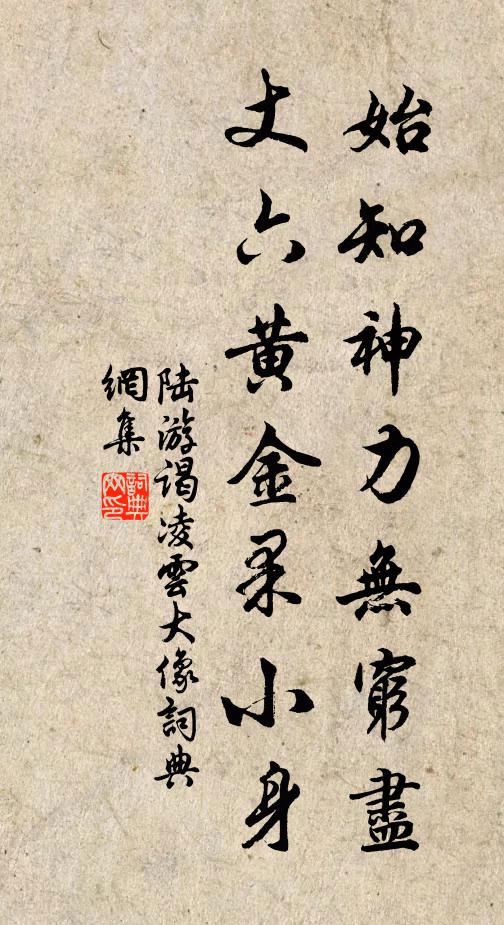 始知神力無窮盡
丈六黃金果小身
陸游謁凌雲大像詞典
網集
詞典
网印